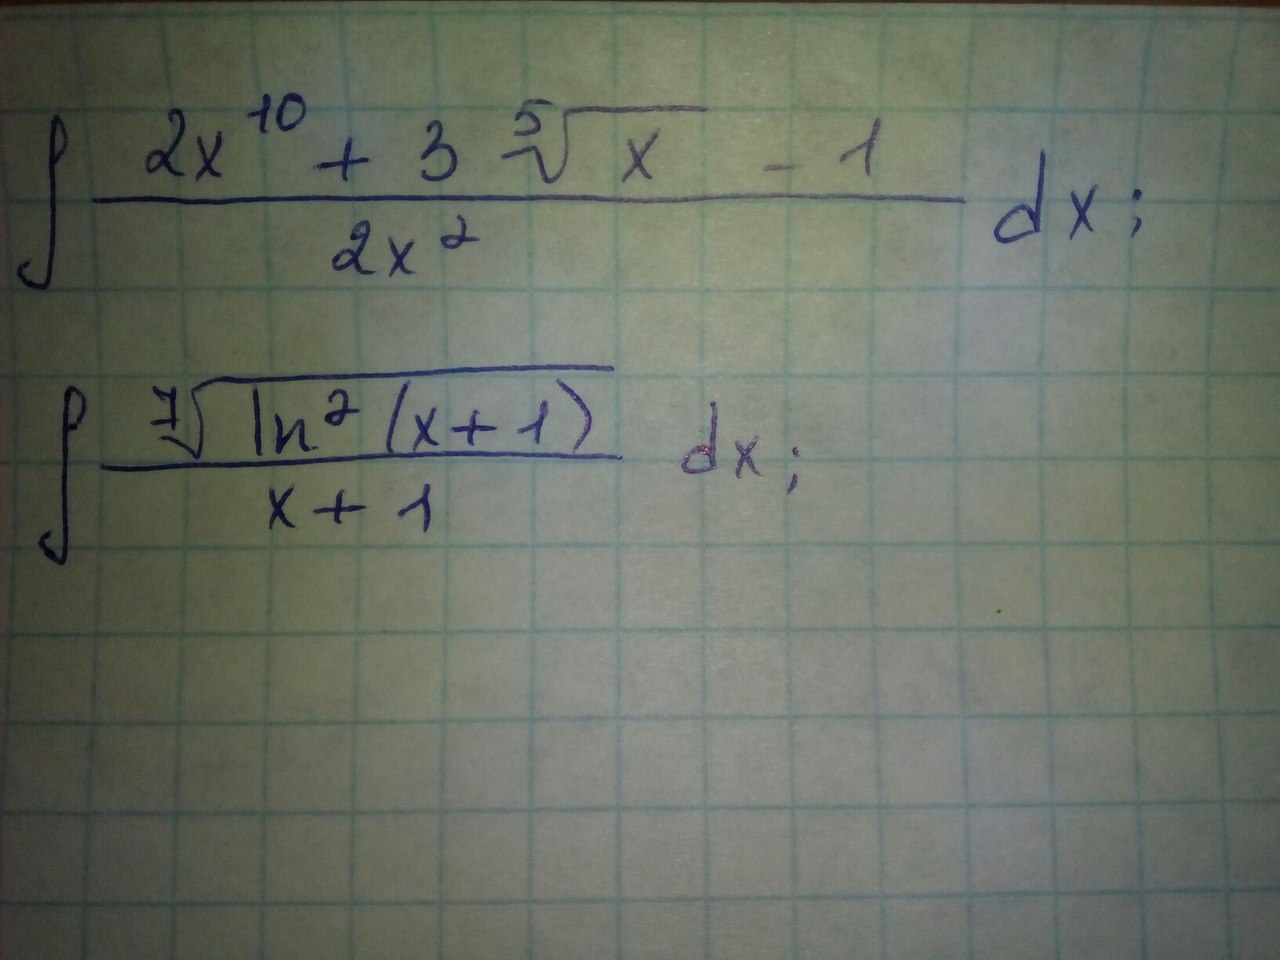 ∫ (2x^10 + 3 ⁵√x - 1) / (2x^2) dx;
∫ ⁷√(ln^2 (x+1)) / (x+1) dx;